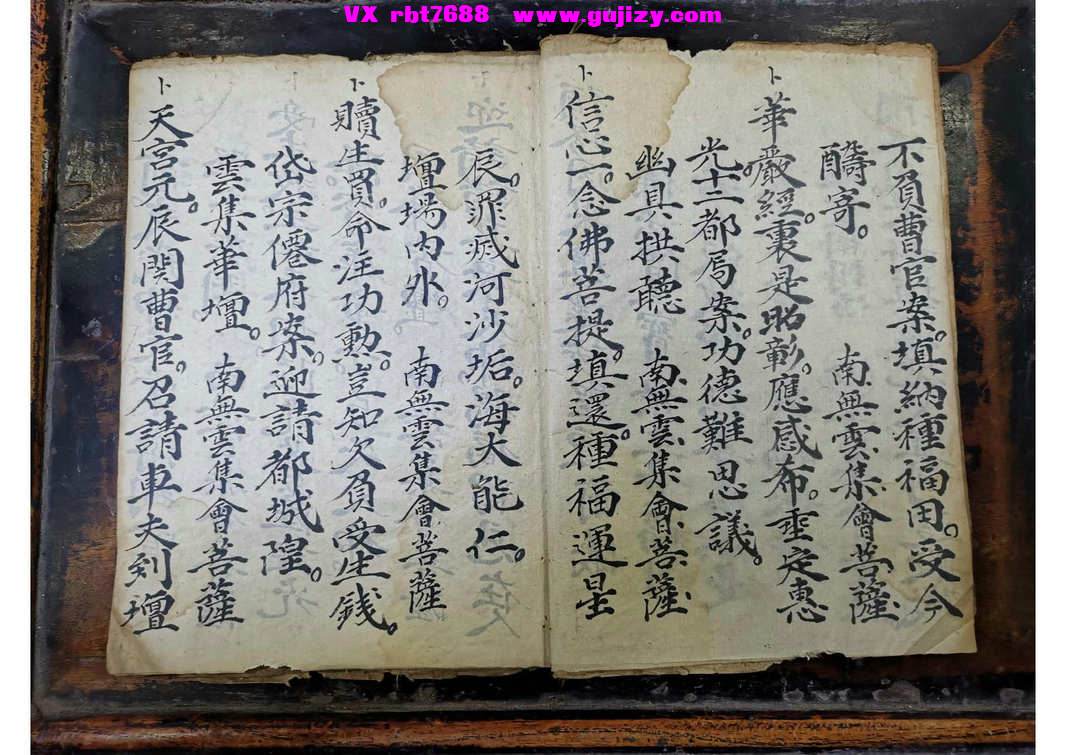 VX rbt7688 www.gujizy.com
不負曹官案。填納種福田。受今
醻寄。 南無雲集會菩薩
卜華嚴經裏是昭彰。應感布。垂定惠
光。十二都局案。功德難思議。
幽具拱聽 南無雲集會菩薩
卜信心一念佛菩提。填還種福運星
辰。罪烕河沙垢。海大能仁。
壇場内外。 南無雲集會菩薩
卜贖生買命注功勲。豈知欠負受生錢。
岱宗僊府案。迎請都城隍。
雲集華壇。 南無雲集會菩薩
卜天宮元辰関曹官。召請車夫到壇